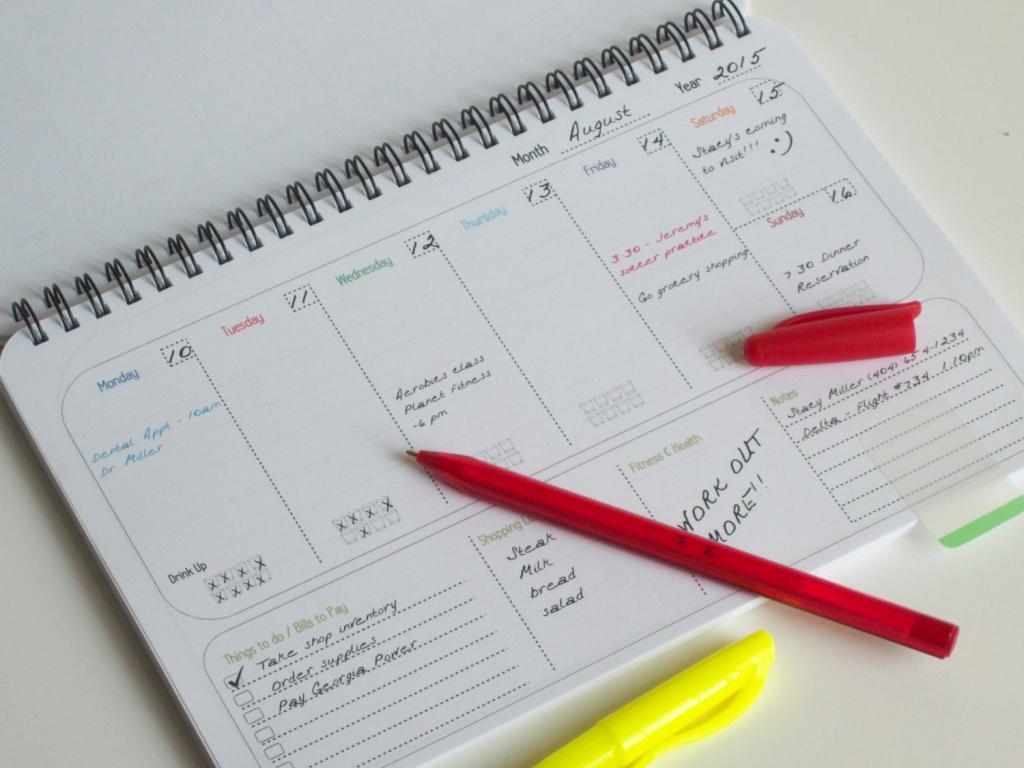 Month August Year 2015
Monday 10
Dental Appt - 10am
Dr Miller
Drink Up
Tuesday 11
Wednesday 12
Aerobics class
Planet Fitness
-6 pm
Thursday 13
Friday 14
3:30 - Jeremy's
soccer practice
Go grocery shopping
Saturday 15
Stacy's coming
to visit!!! :)
Sunday 16
7:30 Dinner
Reservation
Things to do / Bills to Pay
Take shop inventory
Order supplies
Pay Georgia Power
Shopping
Steak
Milk
bread
salad
Fitness & Health
WORK OUT
MORE!!
Notes
Stacy Miller (404) 654-1234
Delta - Flight #734 1:10pm